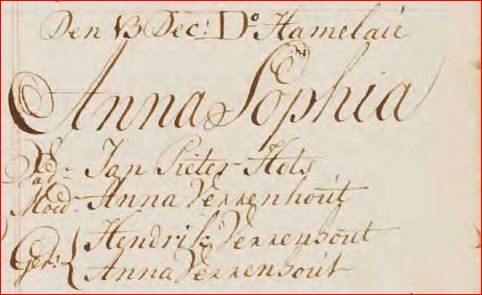 Den 13 Dec: Do Hamelaie
Anna Sophia
Vad:r Jan Pieter Hets
Moed:r Anna Verrenhout
Get: { Hendrik Verrenhout
Anna Verrenhout